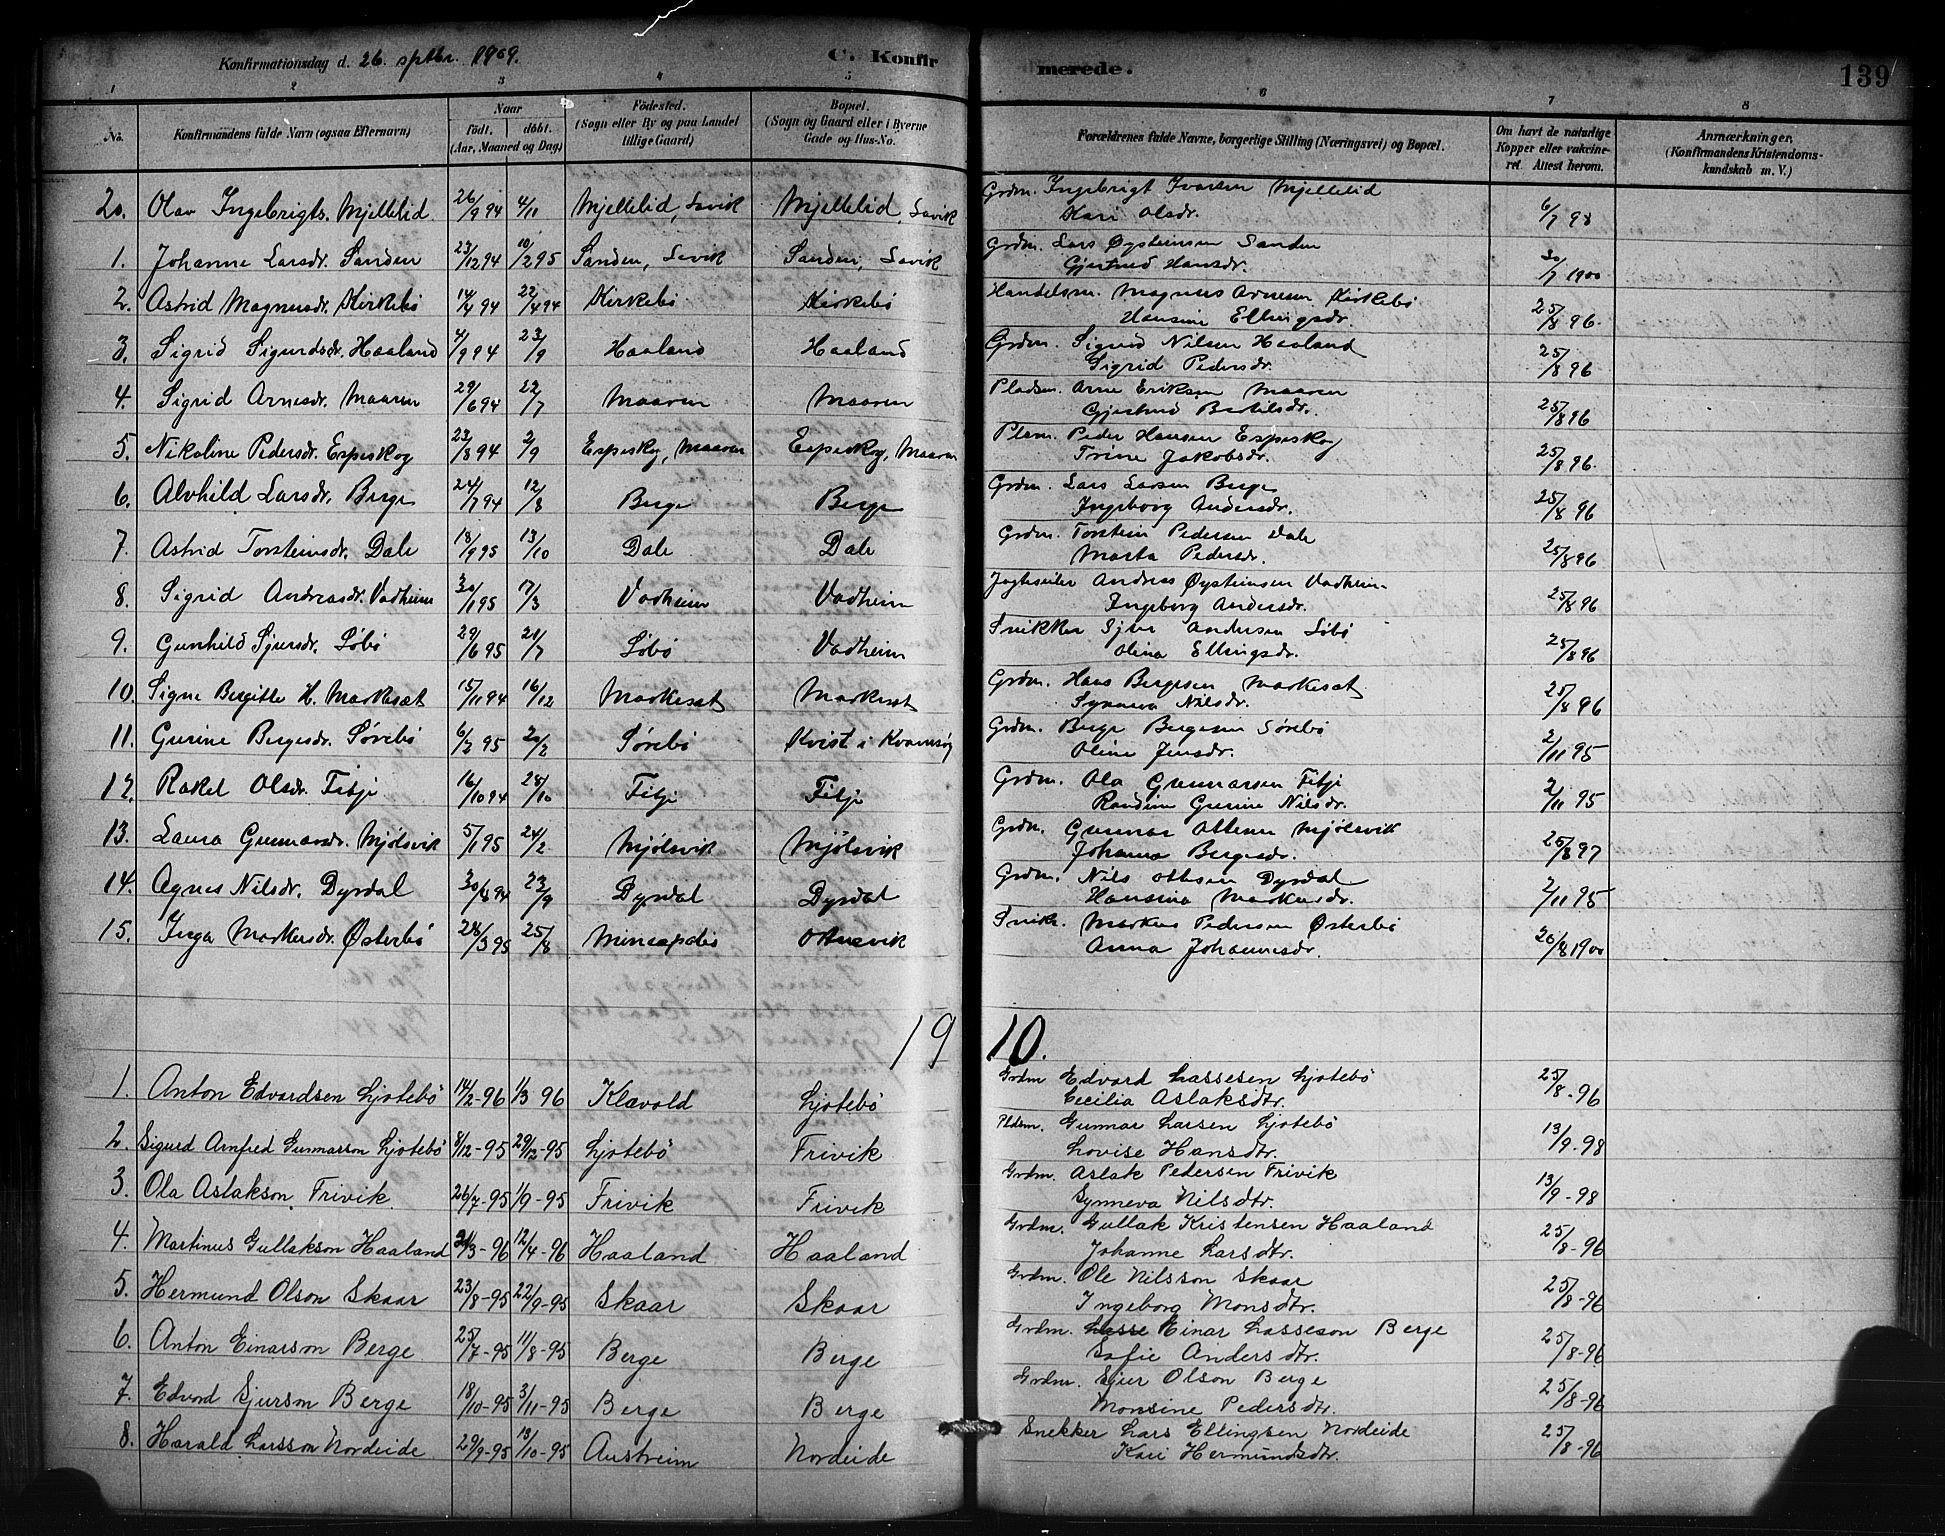 Konfirmationsdag d. 26. sptbr. 1909. C. Konfirmerede. 139
1 2 3 4 5 6 7 8
No. Konfirmandens fulde Navn (ogsaa Efternavn) Naar født, døbt. (Aar, Maaned og Dag) Födested. (Sogn eller By og paa Landet tillige Gaard) Bopæl. (Sogn og Gaard eller i Byerne Gade og Hus-No. Forældrenes fulde Navne, borgerlige Stilling (Næringsvei) og Bopæl. Om havt de naturlige Kopper eller vakcineret. Attest herom. Anmærkninger. (Konfirmandens Kristendomskundskab m. V.)
20. Olav Ingebrigts. Mjellelid 26/9 94 4/11 Mjellelid, Lavik Mjellelid, Lavik Grdm. Ingebrigt Ivarsen Mjellelid 6/7 98
Kari Olsdr.
1. Johanne Larsdr. Sanden 23/12 94 10/2 95 Sanden, Lavik Sanden, Lavik Grdm. Lars Øysteinsen Sanden 30/7 1900
Gjertrud Hansdr.
2. Astrid Magnusdr. Kirkebö 14/4 94 22/4 94 Kirkebö Kirkebö Handelsm. Magnus Arnesen Kirkebö 25/8 96.
Hansine Ellingsdr.
3. Sigrid Sigurdsdr. Haaland 4/9 94 23/9 Haaland Haaland Grdm. Sigurd Nilsen Haaland 25/8 96
Sigrid Pedersdr.
4. Sigrid Arnesdr. Maaren 29/6 94 22/7 Maaren Maaren Pladsm. Arne Eriksen Maaren 25/8 96
Gjertrud Bertilsdr.
5. Nikoline Pedersdr. Espeskog 23/8 94 2/9 Espeskog, Maaren Espeskog, Maaren Plsm. Peder Hansen Espeskog 25/8 96.
Trine Jakobsdr.
6. Alvhild Larsdr. Berge 24/7 94 12/8 Berge Berge Grdm. Lars Larsen Berge 25/8 96
Ingeborg Andersdr.
7. Astrid Torsteinsdr. Dale 18/9 95 13/10 Dale Dale Grdm. Torstein Pedersen Dale 25/8 96
Marta Pedersdr.
8. Sigrid Andreasdr. Vadheim 30/1 95 17/3 Vadheim Vadheim Jagteseiler Andreas Øysteinsen Vadheim 25/8 96
Ingeborg Andersdr.
9. Gunhild Sjursdr. Söbö 29/6 95 21/7 Söbö Vadheim Snikker Sjur Andersen Söbö 25/8 96
Olina Ellingsdr.
10. Signe Bergitte H. Markesæt 15/11 94 16/12 Markesæt Markesæt Grdm. Hans Bergesen Markesæt 25/8 96
Synneva Nilsdr.
11. Gurine Bergesdr. Sørebö 6/2 95 20/2 Sørebö Kvist i Kvamsøy Grdm. Berge Bergesen Sørebö 2/11 95
Oline Jensdr.
12. Rakel Olsdr. Fitje 16/10 94 28/10 Fitje Fitje Grdm. Ola Gunnarsen Fitje 2/11 95
Randine Gurine Nilsdr.
13. Laura Gunnarsdr. Mjölsvik 5/1 95 24/2 Mjölsvik Mjölsvik Grdm. Gunnar Ottesen Mjölsvik 25/8 97
Johanna Bergesdr.
14. Agnes Nilsdr. Dyrdal 30/8 94 23/9 Dyrdal Dyrdal Grdm. Nils Ottesen Dyrdal 2/11 95
Hansina Markusdr.
15. Inga Markusdr. Østerbö 28/3 95 25/8 Mineapolis Ortnevik Snik. Markus Pedersen Østerbö 20/8 1900
Anna Johannesdr.
1910.
1. Anton Edvardsen Ljotebö 14/2-96 1/3 96 Klævold Ljotebö Grdm Edvard Lassesen Ljotebö 25/8-96
Cecilia Aslaksdtr.
2. Sigurd Arnfred Gunnarson Ljotebö 8/12-95 29/12-95 Ljotebö Frivik Pldsm. Gunnar Larsen Ljotebö 13/9-98
Lovise Hansdtr.
3. Ola Aslakson Frivik. 26/7-95 1/9-95 Frivik Frivik Grdm. Aslak Pedersen Frivik 13/9-98
Synneva Nilsdtr.
4. Martinus Gullakson Haaland 21/3-96 12/4-96 Haaland Haaland Grdm. Gullak Kristensen Haaland 25/8-96
Johanne Larsdtr.
5. Hermund Olson Skaar 23/8-95 22/9-95 Skaar Skaar Grdm. Ole Nilsson Skaar 25/8-96
Ingeborg Monsdtr.
6. Anton Einarson Berge 25/7-95 11/8-95 Berge Berge Grdm. Lasse Einar Lasseson Berge 25/8-96
Sofie Andersdtr.
7. Edvard Sjurson Berge 18/10-95 3/11-95 Berge Berge Grdm. Sjur Olson Berge 25/8-96
Monsine Pedersdtr.
8. Harald Larsson Nordeide 29/9-95 13/10-95 Austreim Nordeide Snekker Lars Ellingsen Nordeide 25/8-96
Kari Hermundsdtr.